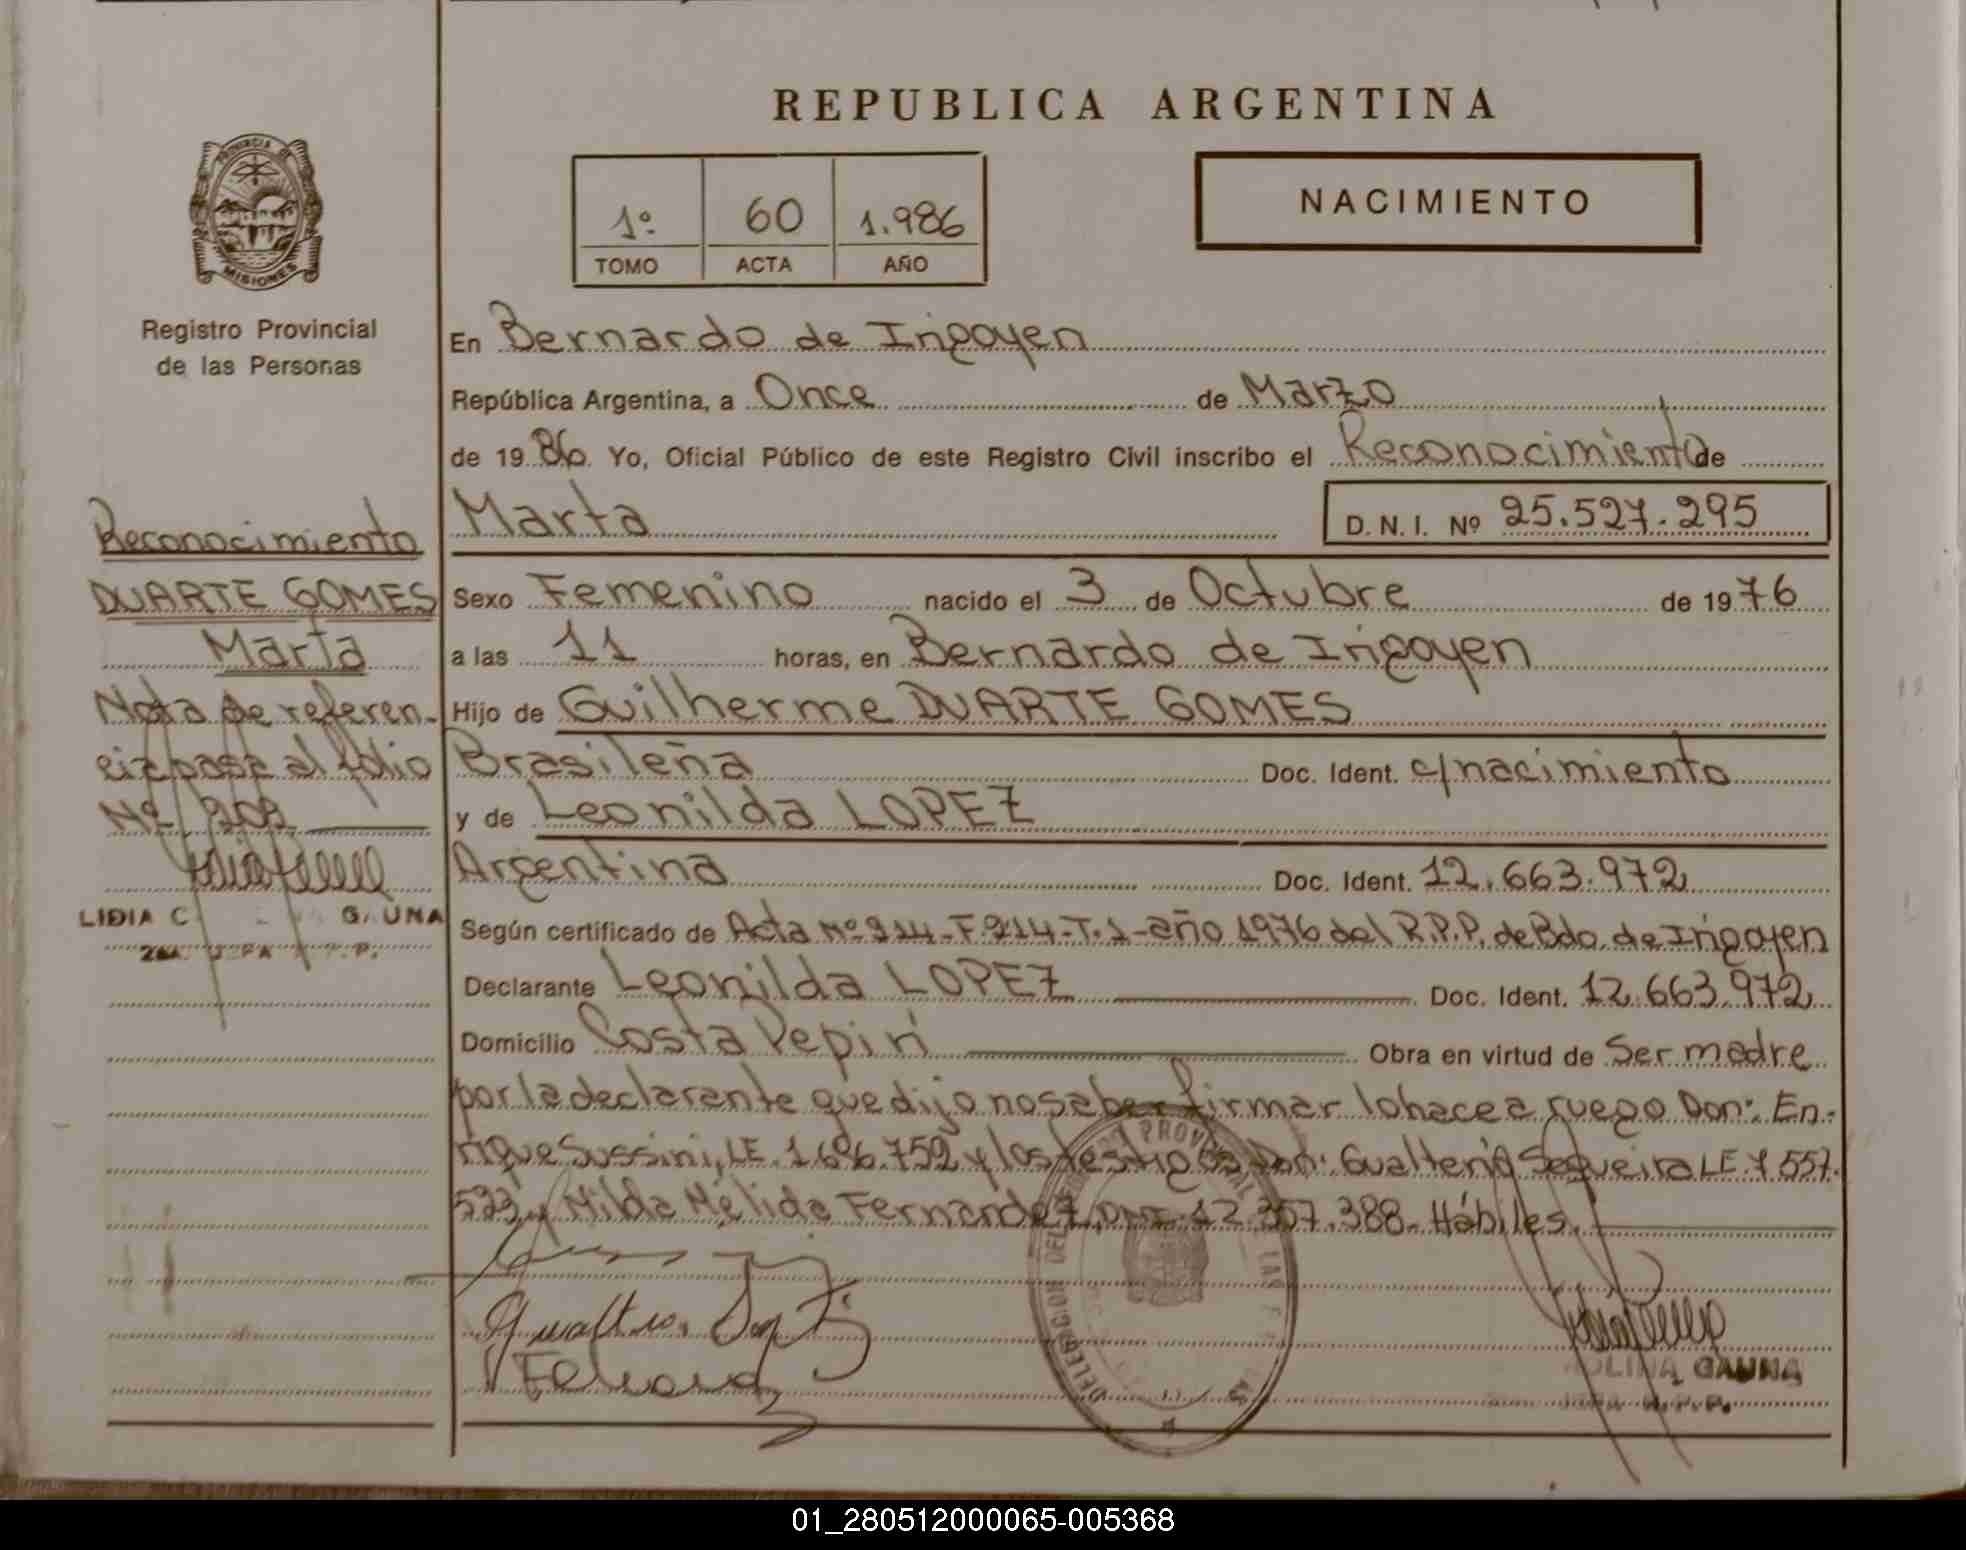 REPUBLICA ARGENTINA
PROVINCIA DE
MISIONES
1º 60 1.986
TOMO ACTA AÑO
NACIMIENTO
Registro Provincial
de las Personas
En Bernardo de Irigoyen
República Argentina, a Once de Marzo
de 1986 Yo, Oficial Público de este Registro Civil inscribo el Reconocimiento de
Marta D. N. I. Nº 25.527.295
Sexo Femenino nacido el 3 de Octubre de 1976
a las 11 horas, en Bernardo de Irigoyen
Hijo de Guilherme DUARTE GOMES
Brasileña Doc. Ident. c/nacimiento
y de Leonilda LOPEZ
Argentina Doc. Ident. 12.663.972
Según certificado de Acta Nº 214-F.214-T.1-año 1976 del R.P.P. de Bdo. de Irigoyen
Declarante Leonilda LOPEZ Doc. Ident. 12.663.972
Domicilio Costa Pepirí Obra en virtud de Ser madre
por la declarante que dijo no saber firmar lo hace a ruego Don: En-
rique Sussini, LE. 1.696.752 y los testigos Don: Gualterio Sequeira LE. 7.557.
523 y Nilda Nélida Fernandez, DNI. 12.357.388. Hábiles.
Reconocimiento
DUARTE GOMES
Marta
Nota de referen-
cia pasa al folio
Nº 202
LIDIA C. GAUNA
R.P.P.
DELEGACION DEL REGISTRO PROVINCIAL DE LAS PERSONAS
MOLINA GAUNA
JEFA R.P.P.
01_280512000065-005368